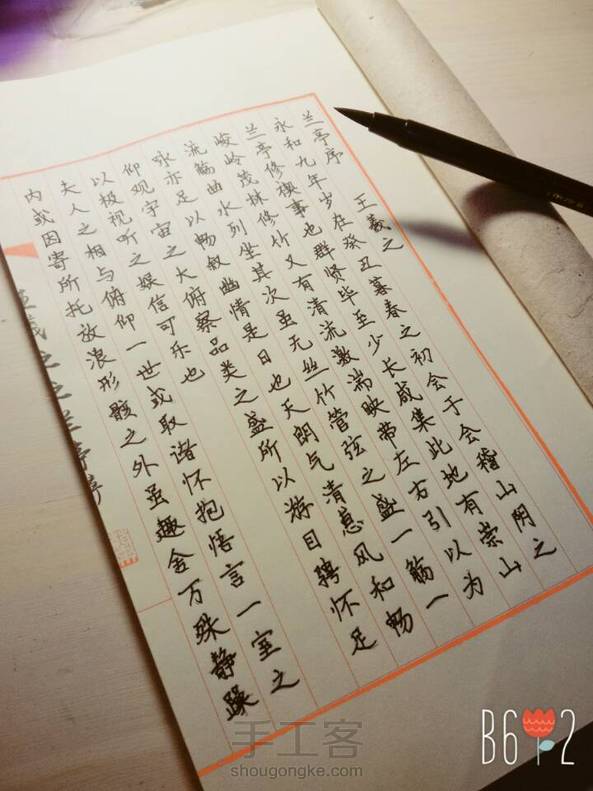 兰亭序 王羲之
永和九年岁在癸丑暮春之初会于会稽山阴之
兰亭修禊事也群贤毕至少长咸集此地有崇山
峻岭茂林修竹又有清流激湍映带左右引以为
流觞曲水列坐其次虽无丝竹管弦之盛一觞一
咏亦足以畅叙幽情是日也天朗气清惠风和畅
仰观宇宙之大俯察品类之盛所以游目骋怀足
以极视听之娱信可乐也
夫人之相与俯仰一世或取诸怀抱悟言一室之
内或因寄所托放浪形骸之外虽趣舍万殊静躁
手工客
shougongke.com
B612